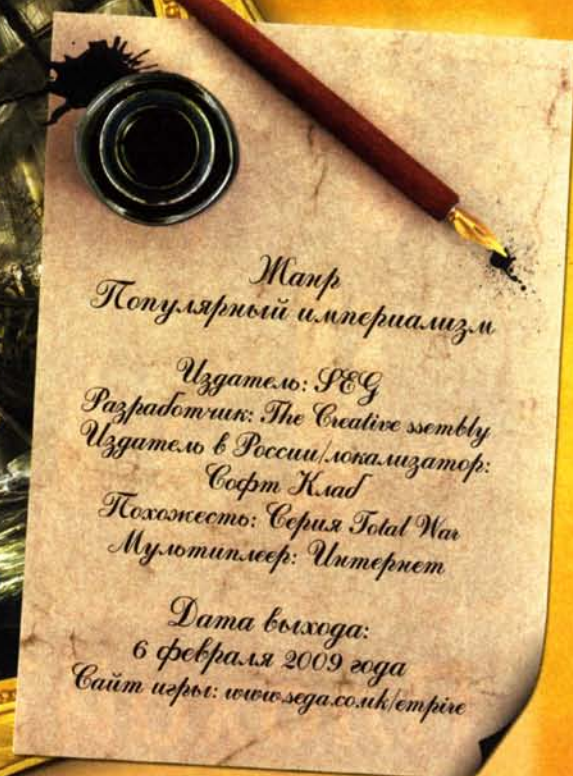 Жанр
Популярный империализм
Издатель: SEG
Разработчик: The Creative ssembly
Издатель в России/локализатор:
Софт Клаб
Похожесть: Серия Total War
Мультиплеер: Интернет
Дата выхода:
6 февраля 2009 года
Сайт игры: www.sega.co.uk/empire